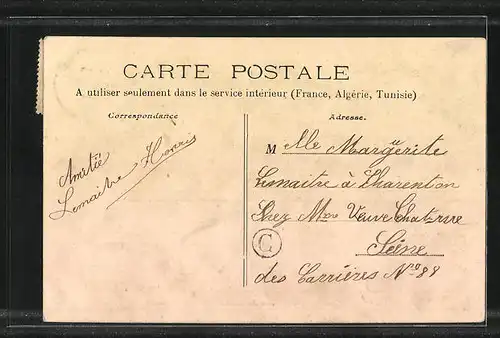 CARTE POSTALE
A utiliser seulement dans le service intérieur (France, Algérie, Tunisie)
Correspondance
Adresse.
Amitié
Lemaitre Henri
M elle Margerite
Lemaitre à Charenton
Chez Mme Veuve
Seine
C
des Carrières Nro 88